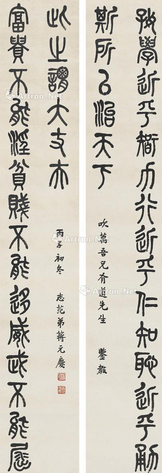 好學近乎智力行近乎仁知恥近乎勇
斯所以治天下
吹萬吾兄有道先生 鑒教
富貴不能淫貧賤不能移威武不能屈
此之謂大丈夫
丙子初冬 志范弟蔣元慶